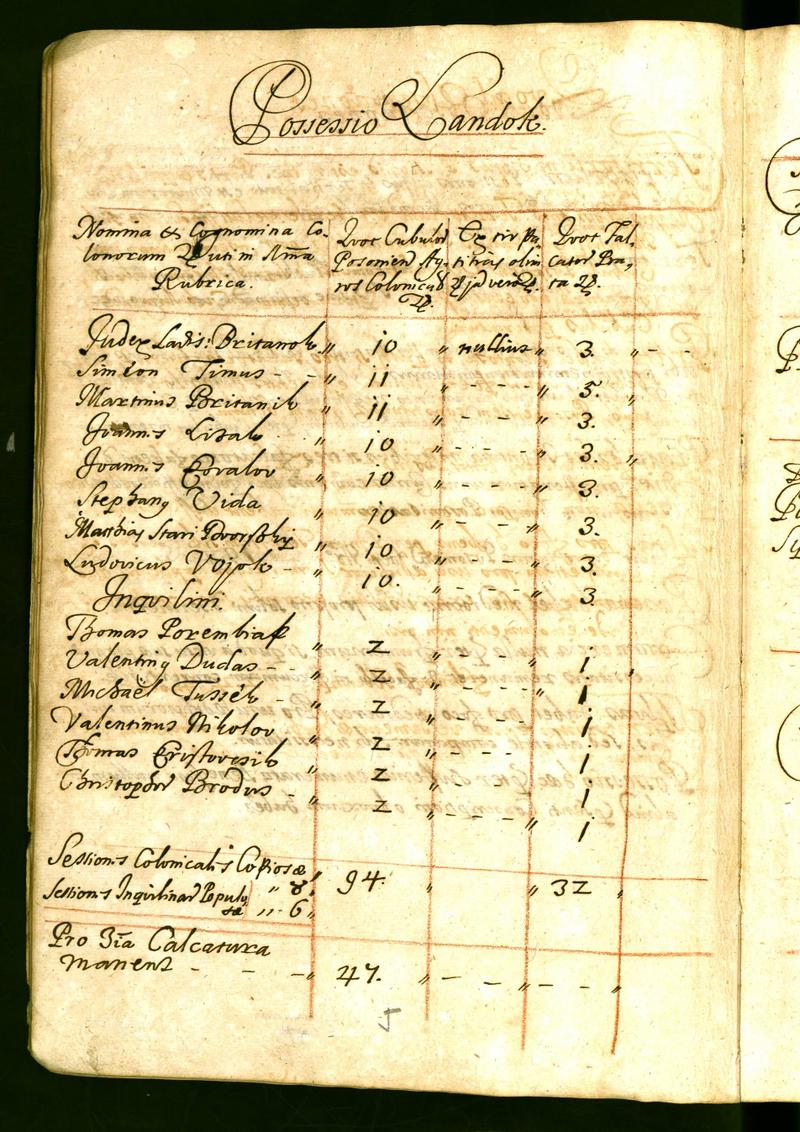 Possessio Landok.
Nomina & Cognomina Co-
lonorum Ut in Ima
Rubrica.
Quot Cubulor
Posonien Ag-
ros Colonical
Ex tir
olim
Quot Fal-
cator Pra-
ta
Judex Ladis: Britanok „ 10 „ nullius „ 3. „ - -
Simeon Timus - - „ 11 „ - - - „ 5. „
Martinus Britanik „ 11 „ - - - „ 3.
Joannes Lisak „ 10 „ - - - „ 3. „
Joannes Koralov „ 10 „ - - - „ 3.
Stephanq Vida „ 10 „ - - - „ 3.
Matthias Stari Dvorszkij „ 10 „ - - - „ 3.
Ludovicus Vojsok - „ 10. „ - - - „ 3.
Inqvilini.
Thomas Porembiak „ 2 „ - - - „ 1
Valentinq Dudas - - „ 2 „ - - - „ 1
Michaël Tussék - „ 2 „ - - - 1
Valentinus Nikolov „ 2 „ - - - 1
Thomas Kristovcsik „ 2 „ - - - 1
Christophor Brodus - „ 2 „ - - - „ 1
Sessiones Colonicales Copiosæ
„ 8 „ 94. „ „ 32 „
Sessiones Inqvilinar Populo
sæ „ 6 „
Pro 3ia Calcatura
manent - - - - „ 47. „ - - „ - - „
5